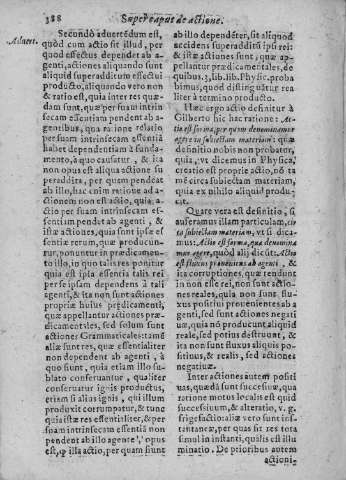 388 Super caput de actione.
Aduert.
Secundò aduertédum est,
quòd cum actio sit illud, per
quod effectus dependet ab a-
genti, actiones aliquando sunt
aliquid superadditum effectui
producto, aliquando vero non
& ratio est, quia inter res quæ-
dam sunt, quæ per suam intrin
secam essentiam pendent ab a-
gentibus, qua ratione relatio
per suam intrinsecam essentiá
habet dependentiam à funda-
mento, à quo causatur, & ita
non opus est aliqua actione su
peraddita, per quam pendeat
ab illo, hæc enim ratione ad a-
ctionem non est actio, quia a-
ctio per suam intrinsecam es-
sentiam pendet ab agenti, &
istæ actiones, quia sunt ipsæ es
sentiæ rerum, quæ producun-
tur, ponuntur in prædicamen-
to illo, in quo tales res ponitur
quia est ipsa essentia talis rei
per se ipsam dependens à tali
agenti, & ita non sunt actiones
propriæ huius prædicamenti,
quæ appellantur actiones præ-
dicamentales, sed solum sunt
actiones Grammaticales: tamé
aliæ sunt res, quæ essentialiter
non dependent ab agenti, à
quo sunt, quia etiam illo su-
blato conseruantur, qualiter
conseruatur ignis productus,
etiam si alius ignis, qui illum
produxit corrumpatur, & tunc
quia istæ res essentialiter, & per
suam intrinsecam essentiâ non
pendent ab illo agente, opus
est, illa actio, per quam sunt
ab illo dependéter, sit aliquod
accidens superadditũ ipsi rei:
& istæ actiones sunt, quæ ap-
pellantur prædicamentales, de
quibus. 3. lib. lib. Physic. proba
bimus, quod distinguũtur rea
liter à termino producto.
Hæc ergo actio definitur à
Gilberto hic hac ratione: Actio
est forma, per quam denominamur
agere in subiectam materiam: quæ
definitio nobis non probatur,
quia, vt dicemus in Physica,
creatio est propriè actio, nó ta
mé circa subiectam materiam,
quia ex nihilo aliquid produ-
cit.
Quare vera est definitio, si
auferamus illam particulam, cir
ca subiectam materiam, vt si dica-
mus: Actio est forma, qua denomina
mur agere, quòd alij dicũt: Actio
est fluxus proueniens ab agenti, &
ita corruptiones, quæ tendunt
in non esse rei, non sunt actio-
nes reales, quia non sunt flu-
xus positiui prouenientes ab a
genti, sed sunt actiones negati
uæ, quia nó producunt aliquid
reale, sed potius destruunt, &
ita non sunt fluxus aliquis po-
sitiuus, & realis, sed actiones
negatiuæ.
Inter actiones autem positi
uas, quædá sunt succesiuæ, qua
ratione motus localis est quid
succesiuum, & alteratio, v. g.
frigefactio: aliæ vero sunt instá-
tanæe, per quas sit res tota
simul in instanti, qualis est illu
minatio. De prioribus autem
actioni-